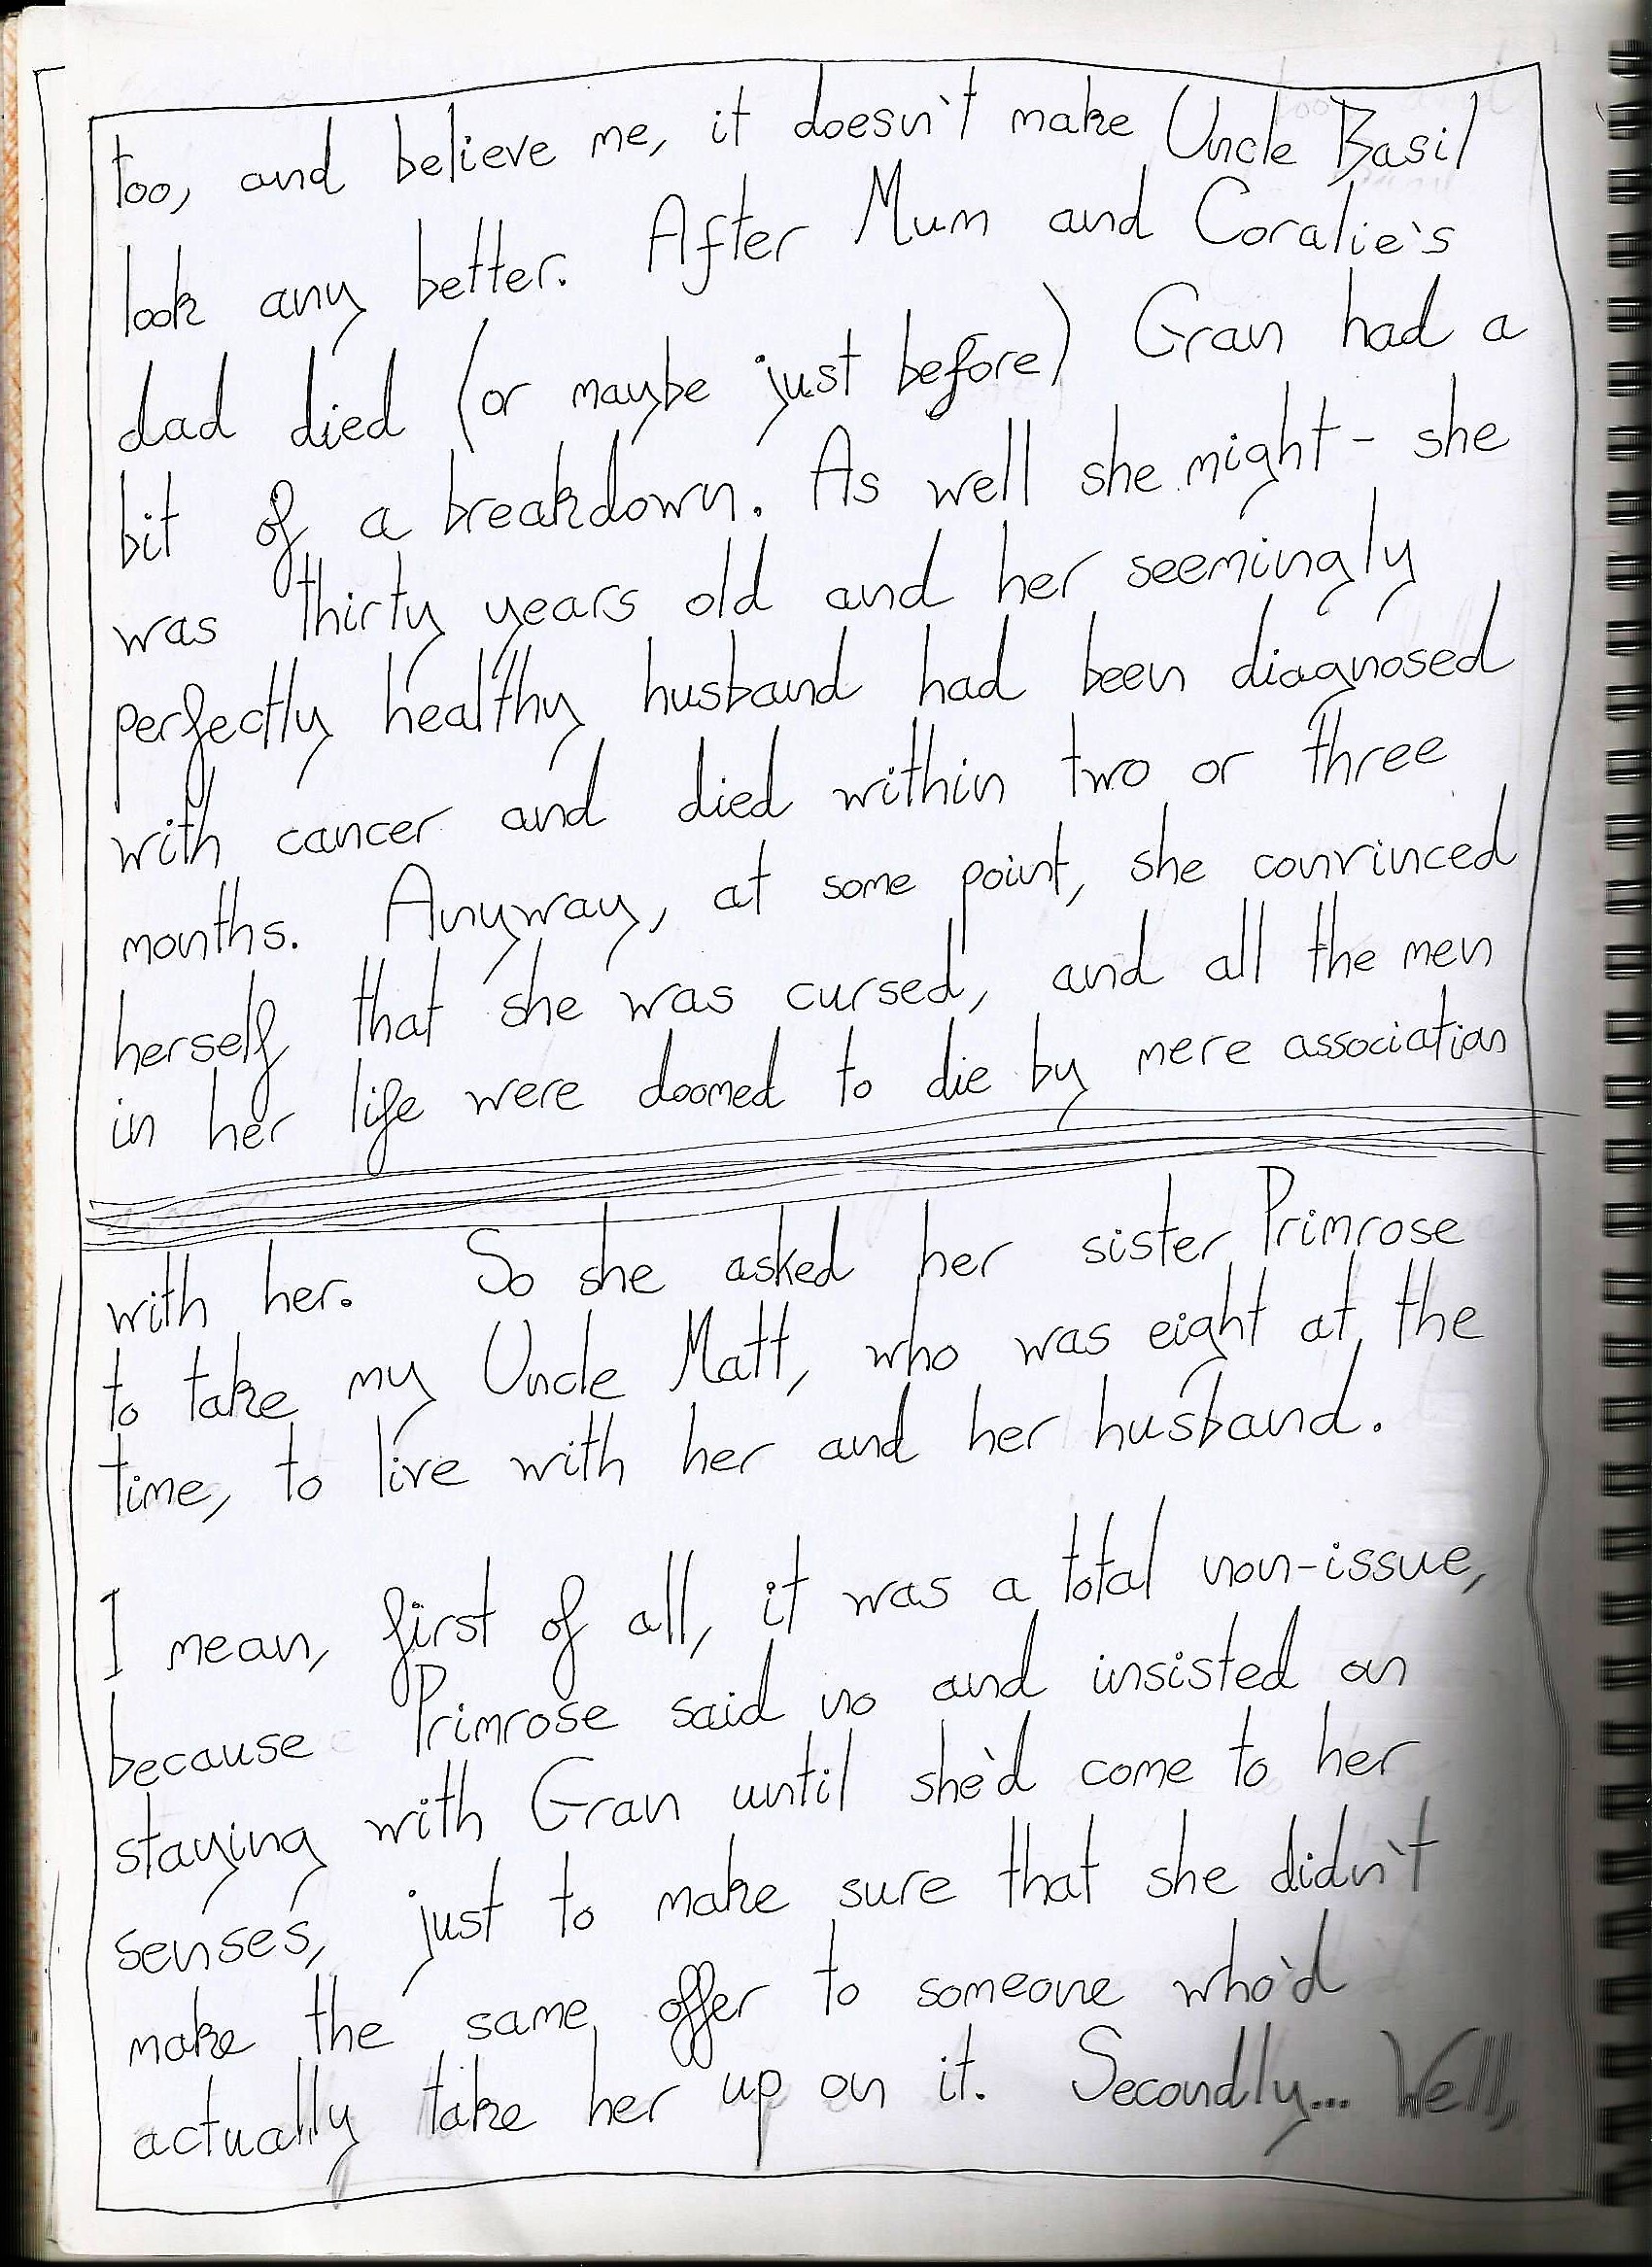 too, and believe me, it doesn't make Uncle Basil
look any better. After Mum and Coralie's
dad died (or maybe just before) Gran had a
bit of a breakdown. As well she might - she
was thirty years old and her seemingly
perfectly healthy husband had been diagnosed
with cancer and died within two or three
months. Anyway, at some point, she convinced
herself that she was cursed, and all the men
in her life were doomed to die by mere association
with her. So she asked her sister Primrose
to take my Uncle Matt, who was eight at the
time, to live with her and her husband.
I mean, first of all, it was a total non-issue,
because Primrose said no and insisted on
staying with Gran until she'd come to her
senses, just to make sure that she didn't
make the same offer to someone who'd
actually take her up on it. Secondly... Well,